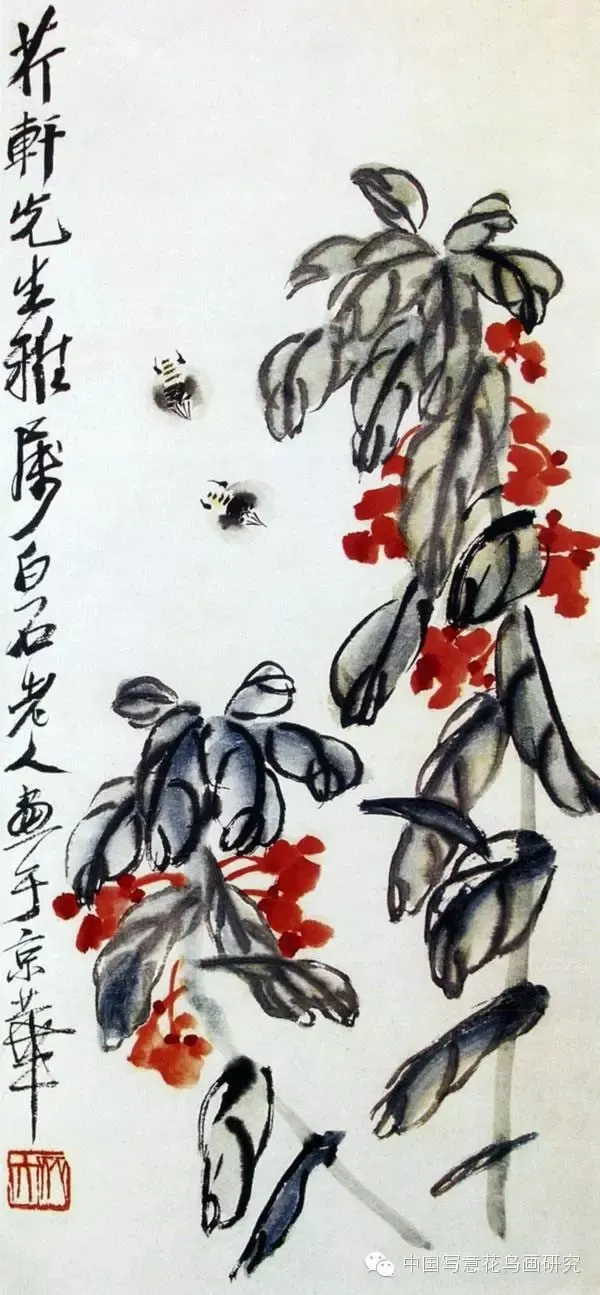 芥軒先生雅屬白石老人畫于京華
中国写意花鸟画研究